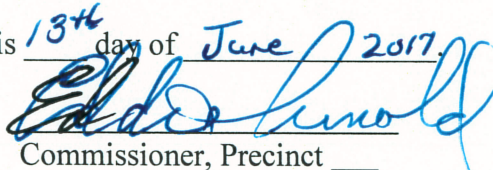 is 13th day of June 2017.
Eddie Arnold
Commissioner, Precinct ___